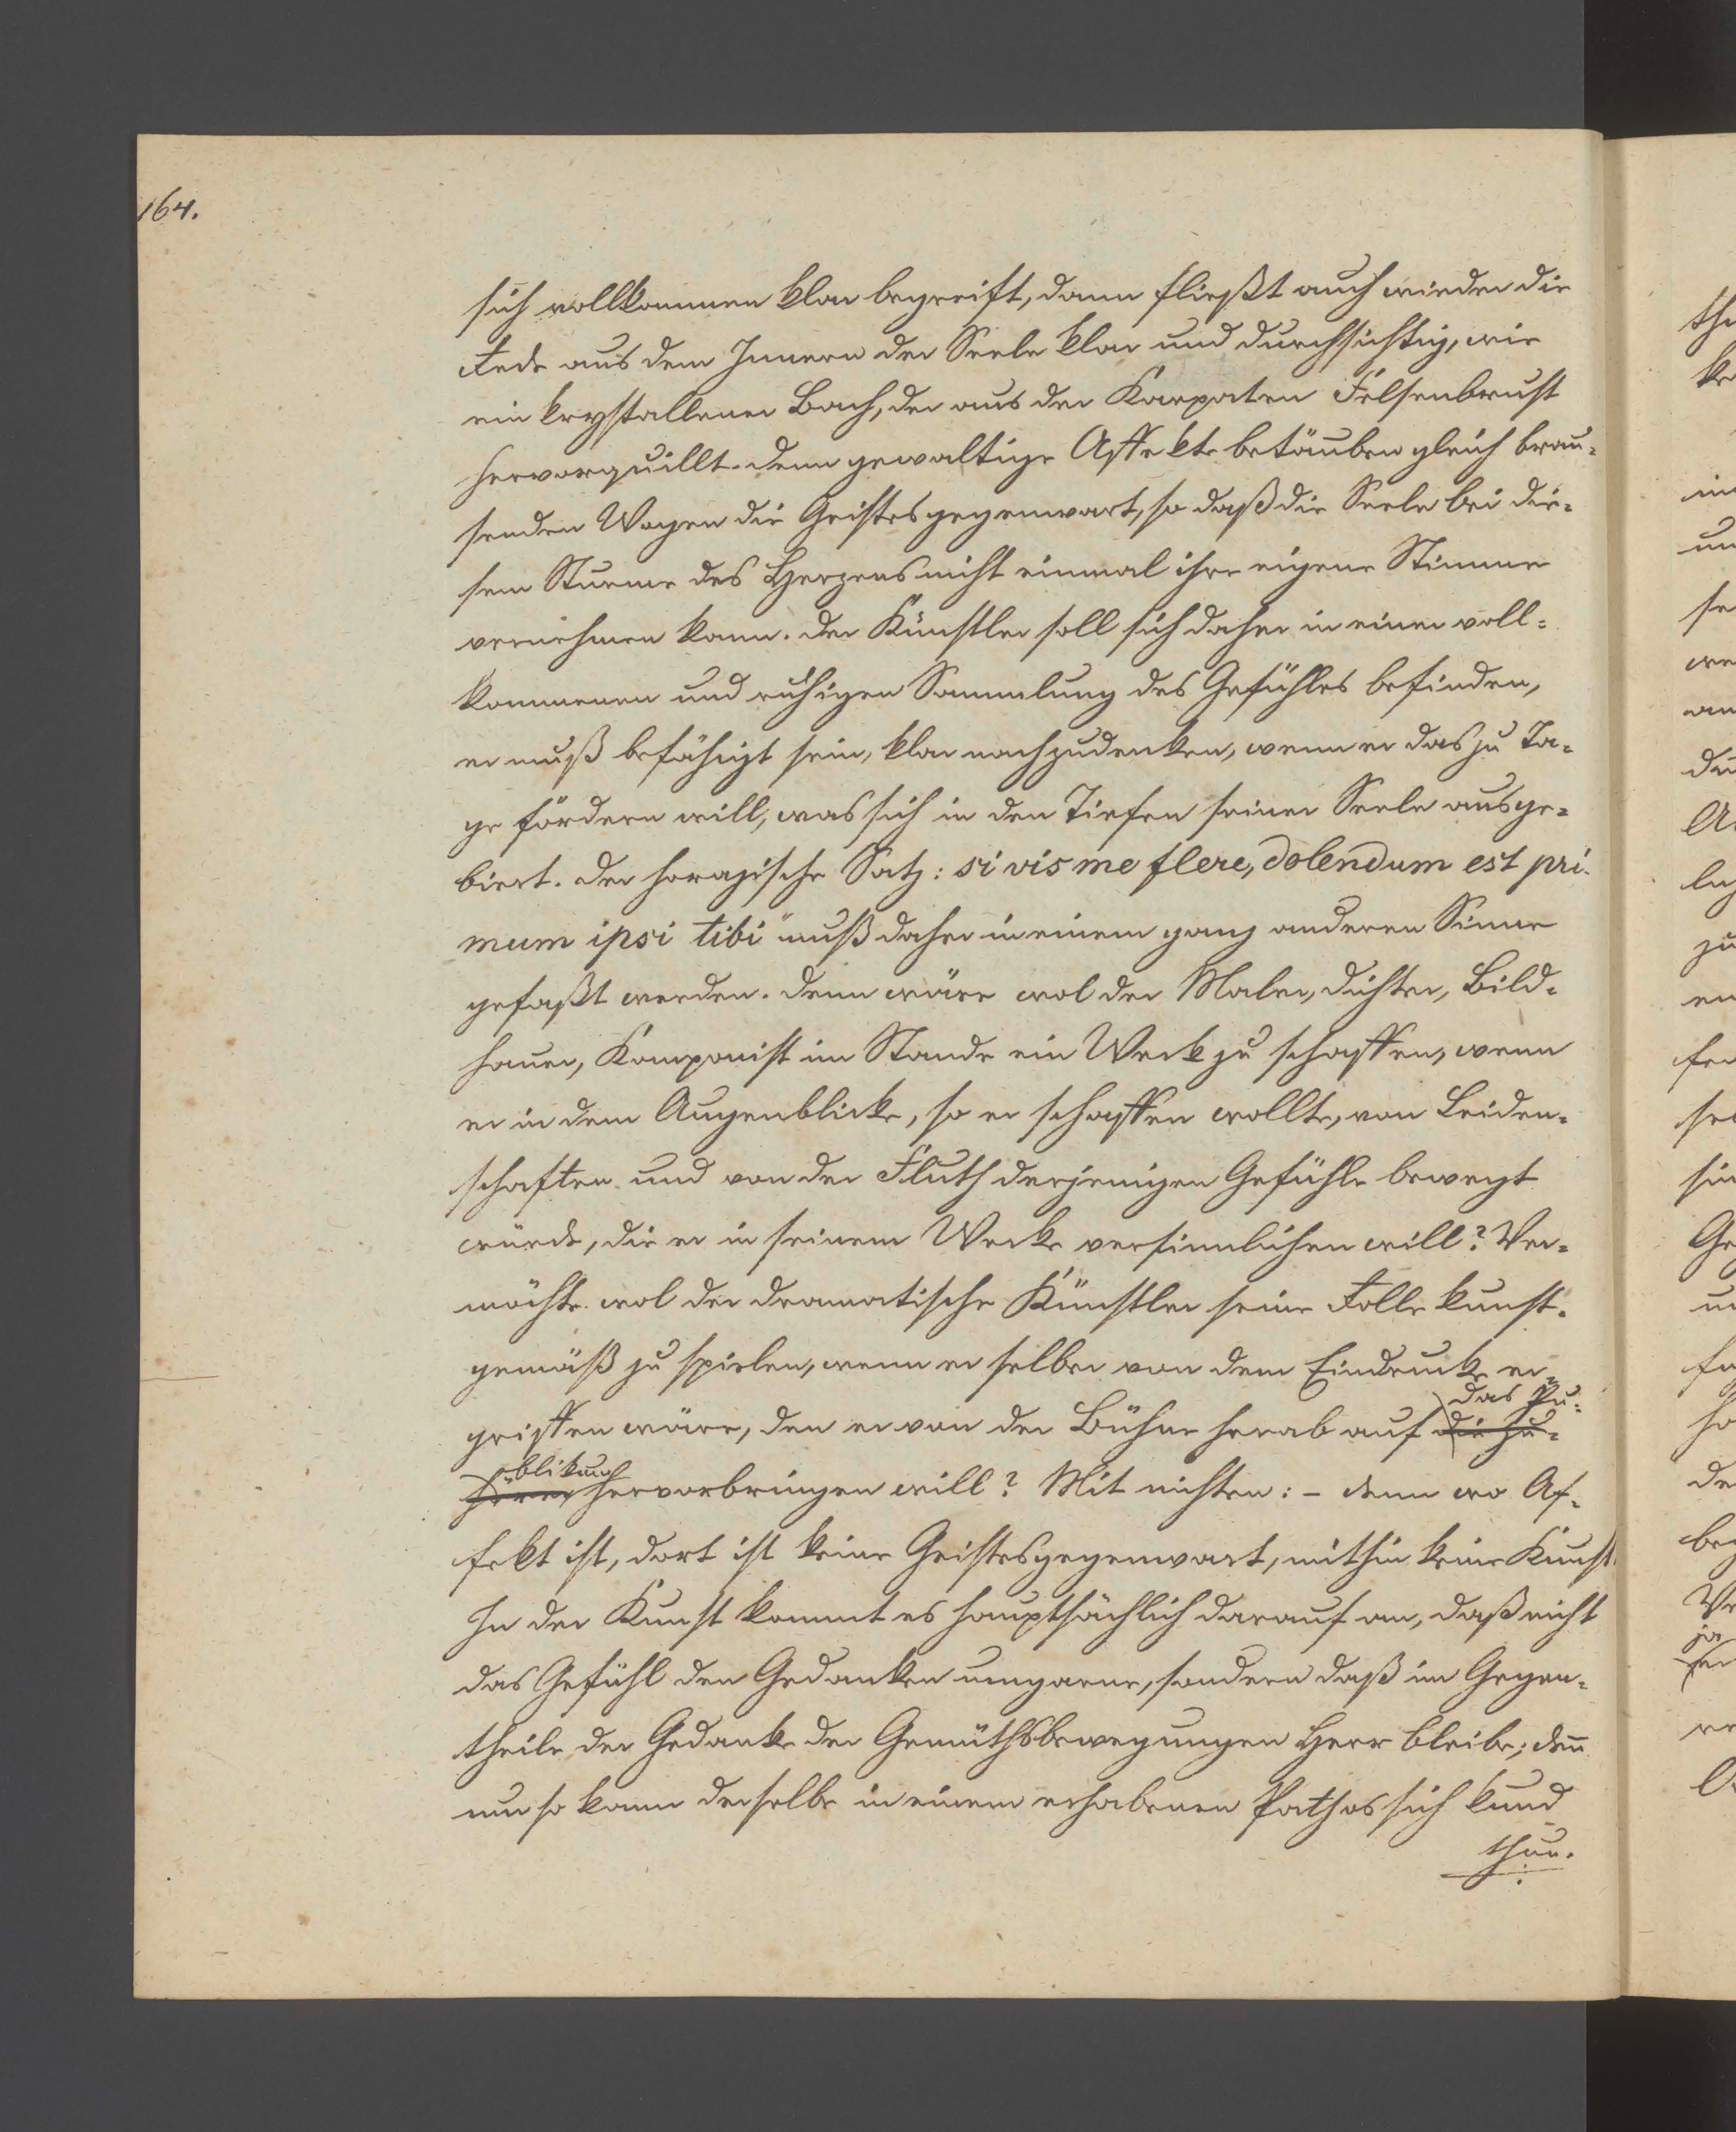 164.
sich vollkommen klar begreift, dann fließt auch wieder die
Rede aus dem Innern der Seele klar und durchsichtig, wie
ein krystallener Bach, der aus der Karpaten Felsenbrust
hervorquillt. Denn gewaltige Affekte betäuben gleich brau-
senden Wogen die Geistesgegenwart, so daß die Seele bei die-
sem Sturme des Herzens nicht einmal ihre eigene Stimme
vernehmen kann. Der Künstler soll sich daher in einer voll-
kommenen und ruhigen Sammlung des Gefühles befinden,
er muß befähigt sein, klar nachzudenken, wenn er das zu Ta-
ge fördern will, was sich in den Tiefen seiner Seele ausge-
biert. Der horazische Satz: si vis me flere, dolendum est pri-
mum ipsi tibi" muß daher in einem ganz anderen Sinne
gefaßt werden. Denn wäre wol der Maler, Dichter, Bild-
hauer, Komponist im Stande ein Werk zu schaffen, wenn
er in dem Augenblicke, so er schaffen wollte, von Leiden-
schaften und von der Fluth derjenigen Gefühle bewegt
würde, die er in seinem Werke versinnlichen will? Ver-
möchte wol der dramatische Künstler seine Rolle kunst-
gemäß zu spielen, wenn er selber von dem Eindrucke er-
das Pu-
griffen wäre, den er von der Bühne herab auf die Zu-
blikum
hörer hervorbringen will? Mit nichten: - denn wo Af-
fekt ist, dort ist keine Geistesgegenwart, mithin keine Kunst.
In der Kunst kommt es hauptsächlich darauf an, daß nicht
das Gefühl den Gedanken umgarne, sondern daß im Gegen-
theile der Gedanke der Gemüthsbewegungen Herr bleibe; den̄
nur so kann derselbe in einem erhabenen Pathos sich kund
thun.